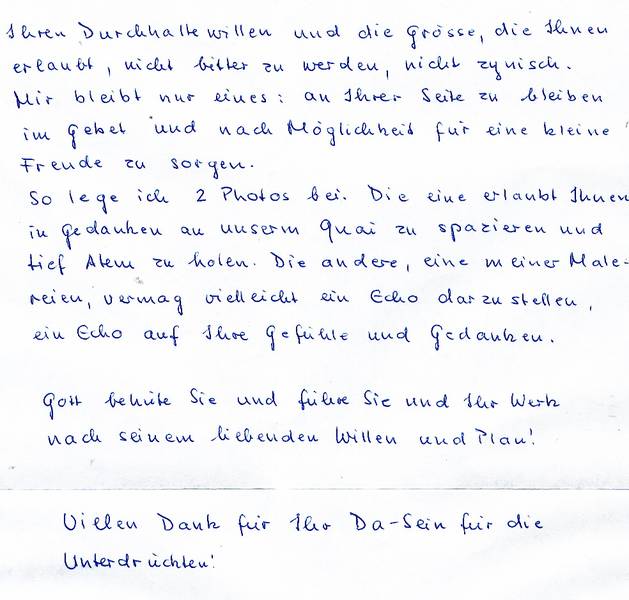 Ihren Durchhaltewillen und die Grösse, die Ihnen
erlaubt, nicht bitter zu werden, nicht zynisch.
Mir bleibt nur eines: an Ihrer Seite zu bleiben
im Gebet und nach Möglichkeit für eine kleine
Freude zu sorgen.
So lege ich 2 Photos bei. Die eine erlaubt Ihnen
in Gedanken an unserm Quai zu spazieren und
tief Atem zu holen. Die andere, eine meiner Male-
reien, vermag vielleicht ein Echo darzustellen,
ein Echo auf Ihre Gefühle und Gedanken.
Gott behüte Sie und führe Sie und Ihr Werk
nach seinem liebenden Willen und Plan!
Vielen Dank für Ihr Da-Sein für die
Unterdrückten!